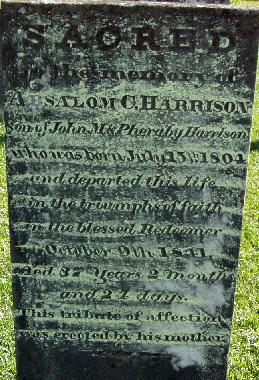 SACRED
to the memory of
ABSALOM C. HARRISON
son of John M & Pheraby Harrison
who was born July 15th 1804
and departed this life
in the triumphs of faith
in the blessed Redeemer
October 9th 1841,
Aged 37 Years 2 months
and 24 days.
This tribute of affection
was erected by his mother